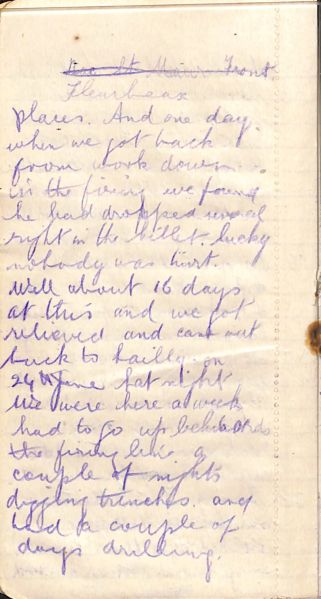 Front
Fleurbeax
places. And one day
when we got back
from work down
in the firing we found
he had dropped several
right in the billet. lucky
nobody was hurt.
Well about 16 days
at this and we got
relieved and came out
back to Sailly on
24th June Sat night
We were here a week
had to go up behind
the firing line a
couple of nights
digging trenches. and
had a couple of
days drilling.